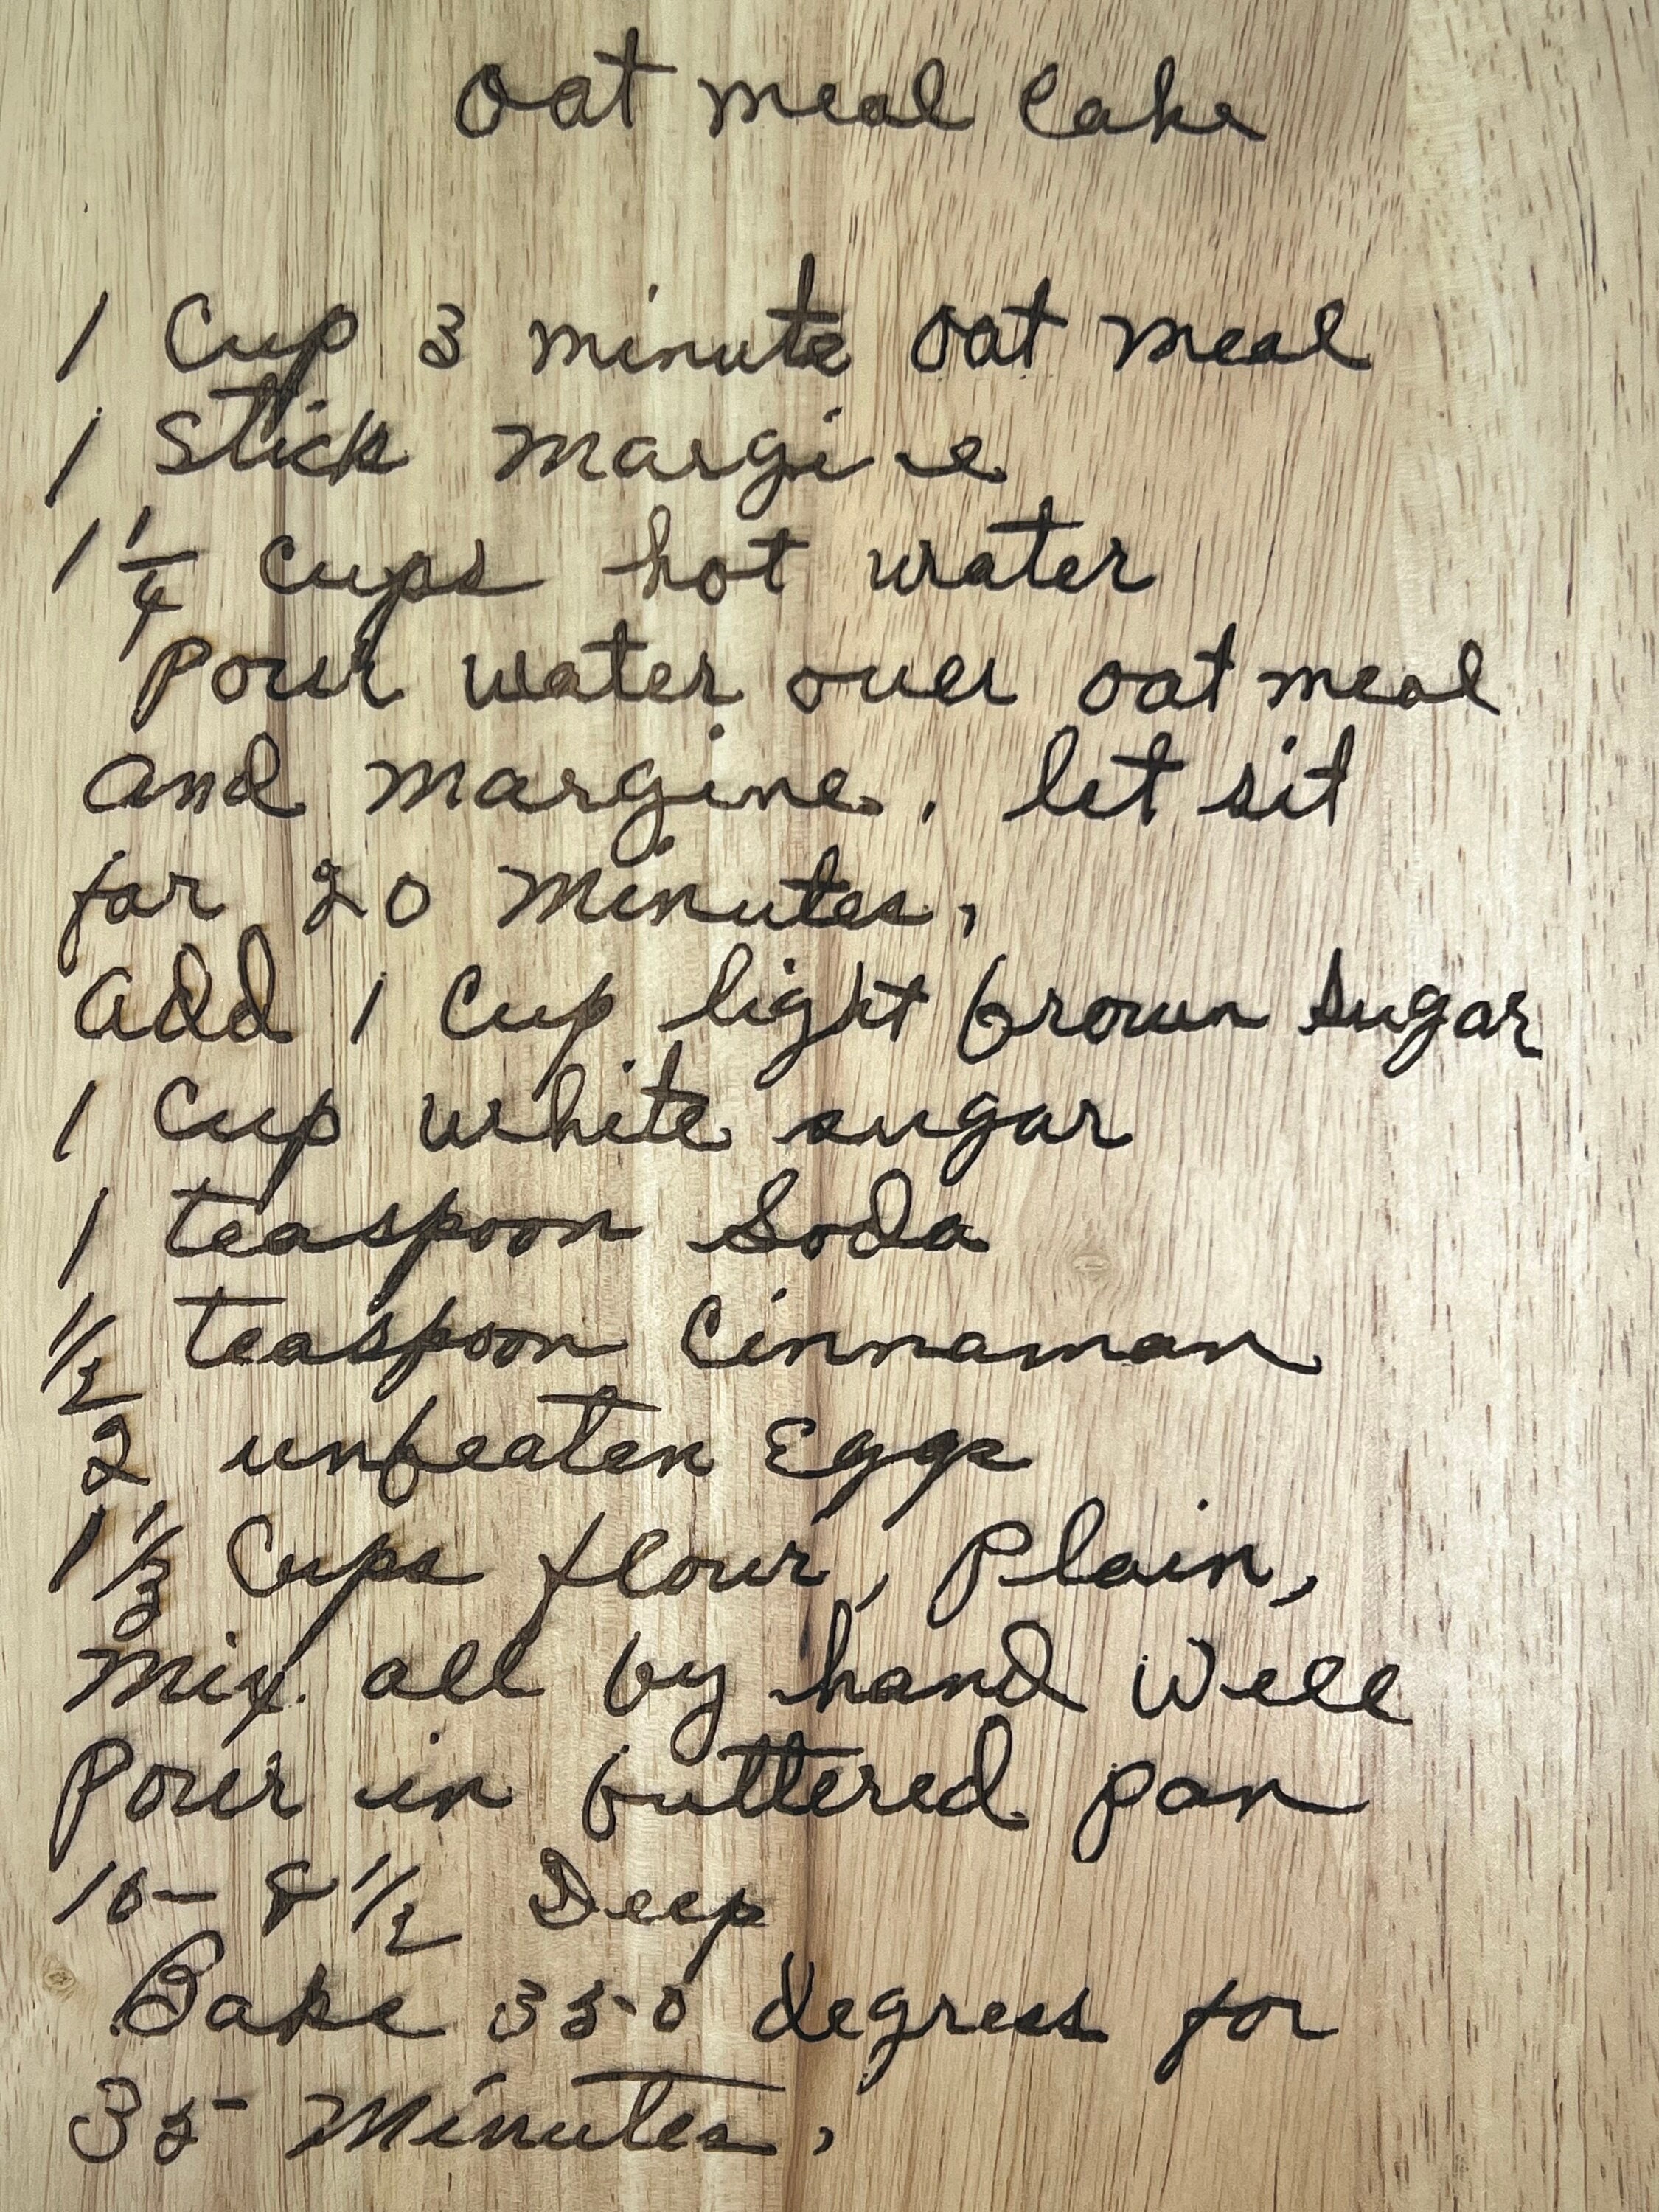 Oat meal Cake
1 Cup 3 minute Oat meal
1 Stick margine
1 1/4 Cups hot water
Pour water over oat meal
and margine. let sit
for 20 minutes,
add 1 Cup light brown sugar
1 Cup white sugar
1 teaspoon Soda
1/2 teaspoon Cinnaman
2 unbeaten Eggs
1 1/3 Cups flour, Plain,
Mix all by hand Well
Pour in buttered pan
10- 8 1/2 Deep
Bake 350 degrees for
35 Minutes,